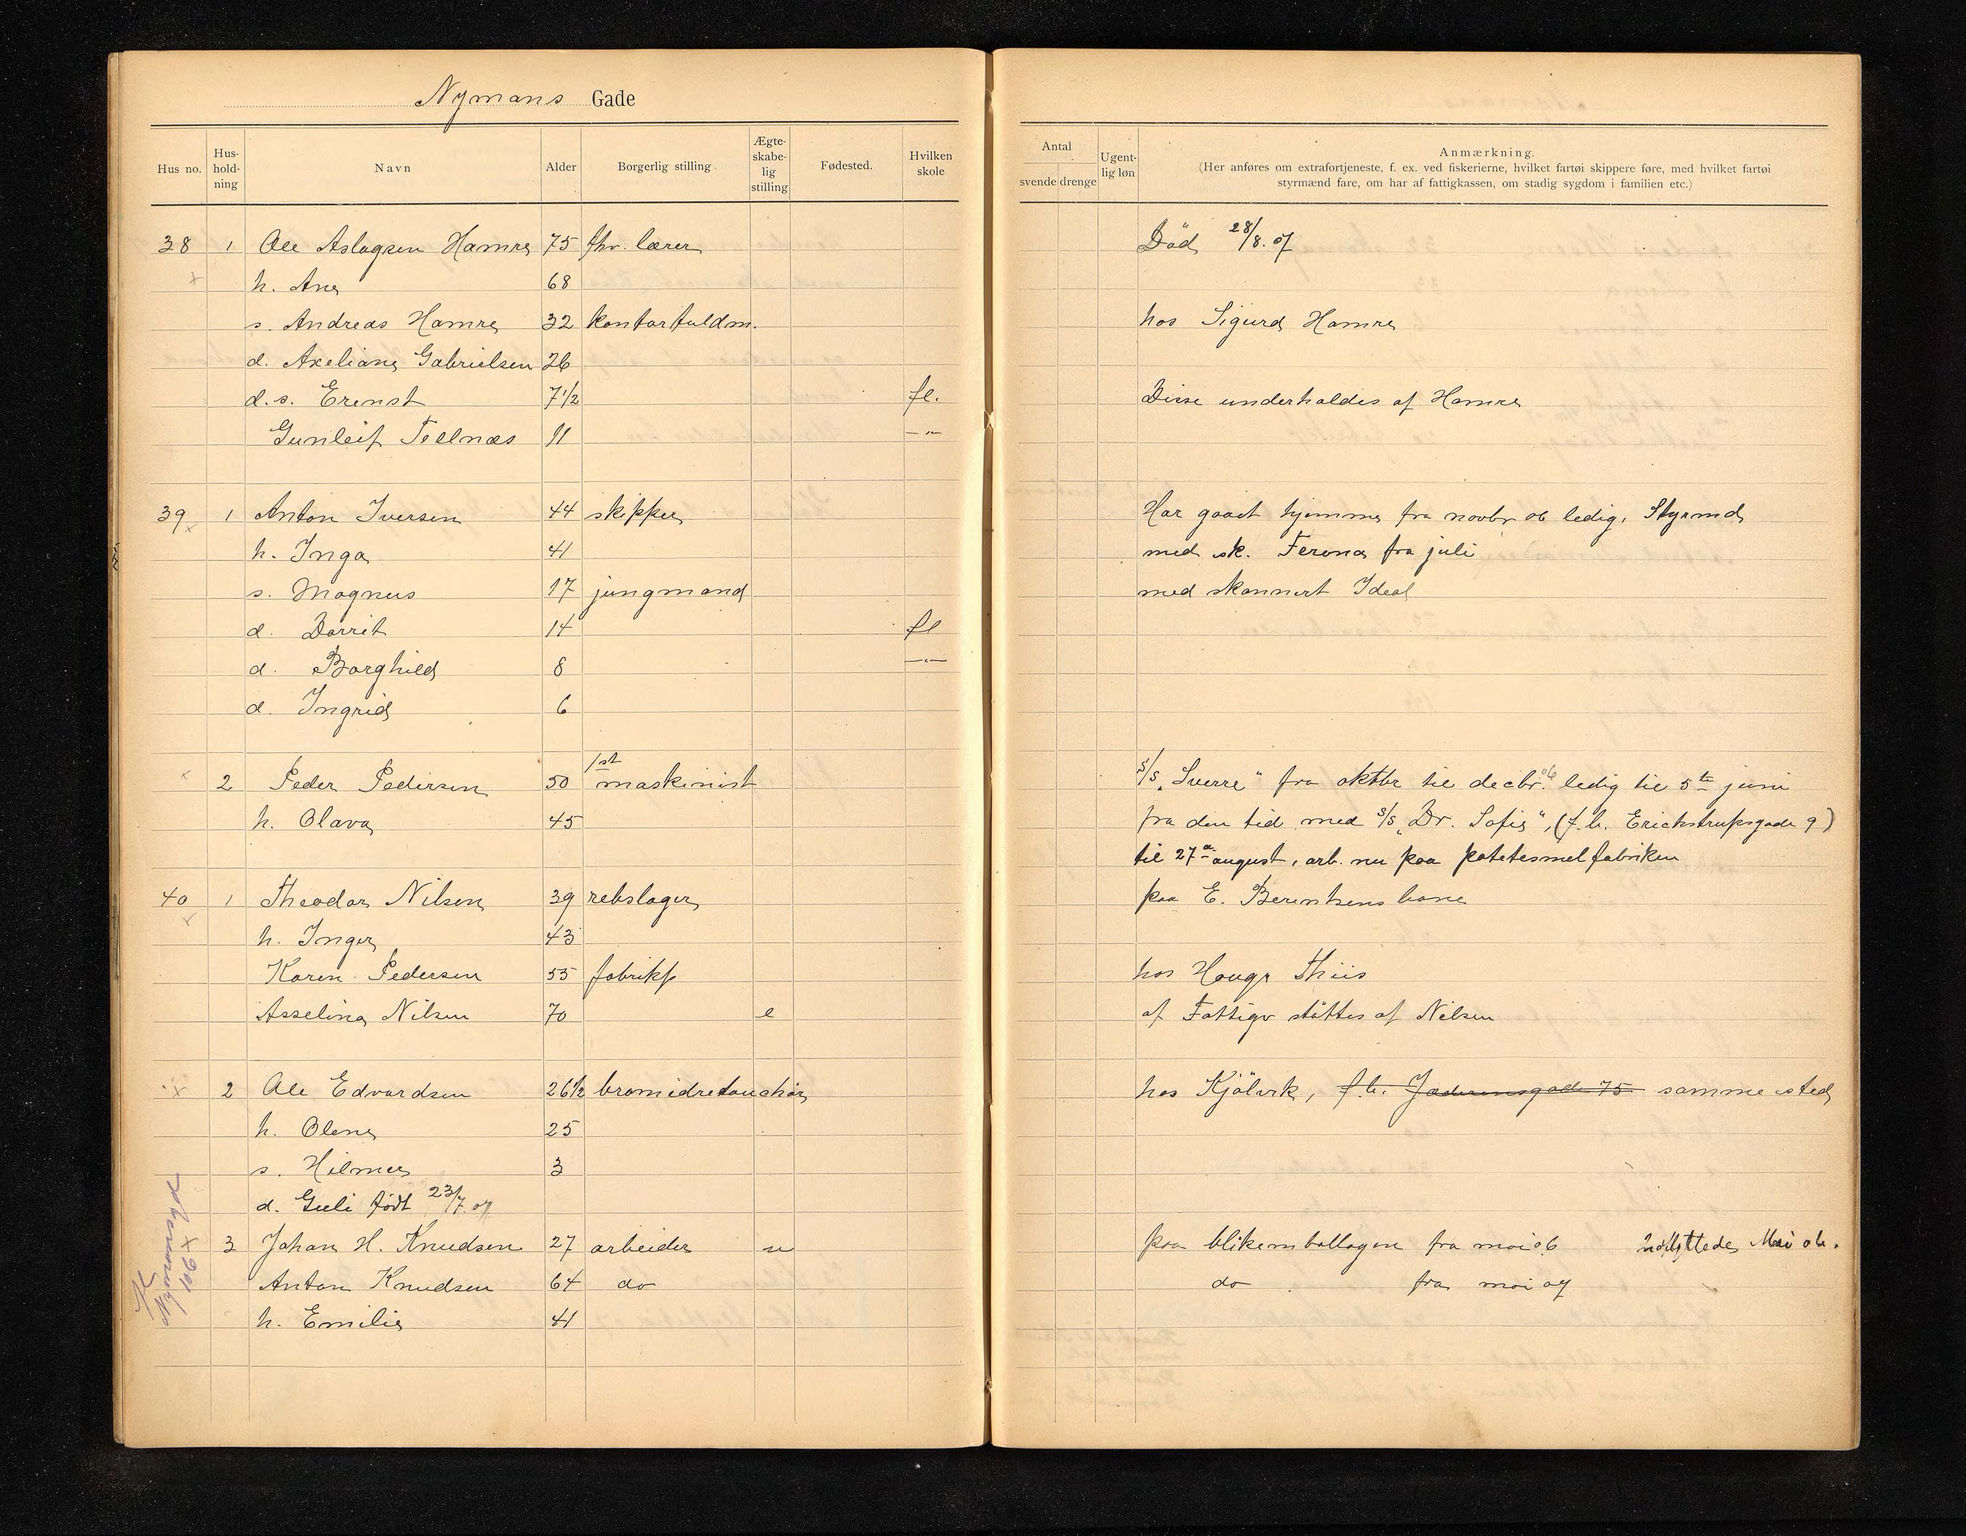 Nymans Gade
Hus no. Hus-hold-ning Navn Alder Borgerlig stilling. Ægte-skabe-lig stilling Fødested. Hvilken skole
Antal svende drenge Ugent-lig løn Anmærkning.
(Her anføres om extrafortjeneste, f. ex. ved fiskerierne, hvilket fartøi skippere føre, med hvilket fartøi
styrmænd fare, om har af fattigkassen, om stadig sygdom i familien etc.)
38 1 Ole Aslagsen Hamre 75 fhv. lærer Död 28/8. 07
h. Ane 68
s. Andreas Hamre 32 kontorfuldm. hos Sigurd Hamre
d. Axeliane Gabrielsen 26
d.s. Erenst 7 1/2 fl. Disse underholdes af Hamre
Gunleif Tellnæs 11 -"-
39 1 Anton Iversen 44 skipper Har gaaet hjemme fra novbr 06 ledig. Styrmd
h. Inga 41 med sk. Ferona fra juli
s. Magnus 17 jungmand med skonnert Ideal
d. Dorrit 14 fl
d. Borghild 8 -"-
d. Ingrid 6
2 Peder Pedersen 50 1st maskinist S/S "Sverre" fra oktbr til decbr. 06 ledig til 5te juni
h. Olava 45 fra den tid med S/S "Dr. Sofie", (f.b. Erichstrupsgade 9)
til 27de august, arb. nu paa potetesmelfabriken
40 1 Theodor Nilsen 39 rebslager paa E. Berentsens bane
h. Inger 43
Karen Pedersen 55 fabrikp hos Houge Thiis
Asseline Nilsen 70 e af Fattigv støttes af Nilsen
2 Ole Edvardsen 26 1/2 bromidretouchör hos Kjölvik, f.b. Jæderensgade 75 sammested
h. Olene 25
s. Hilmer 3
d. Guli født 23/7. 07
3 Johan H. Knudsen 27 arbeider u paa blikemballagen fra mai 06 indflyttede Mai 06.
Anton Knudsen 64 do do fra mai 07
h. Emilie 41
106